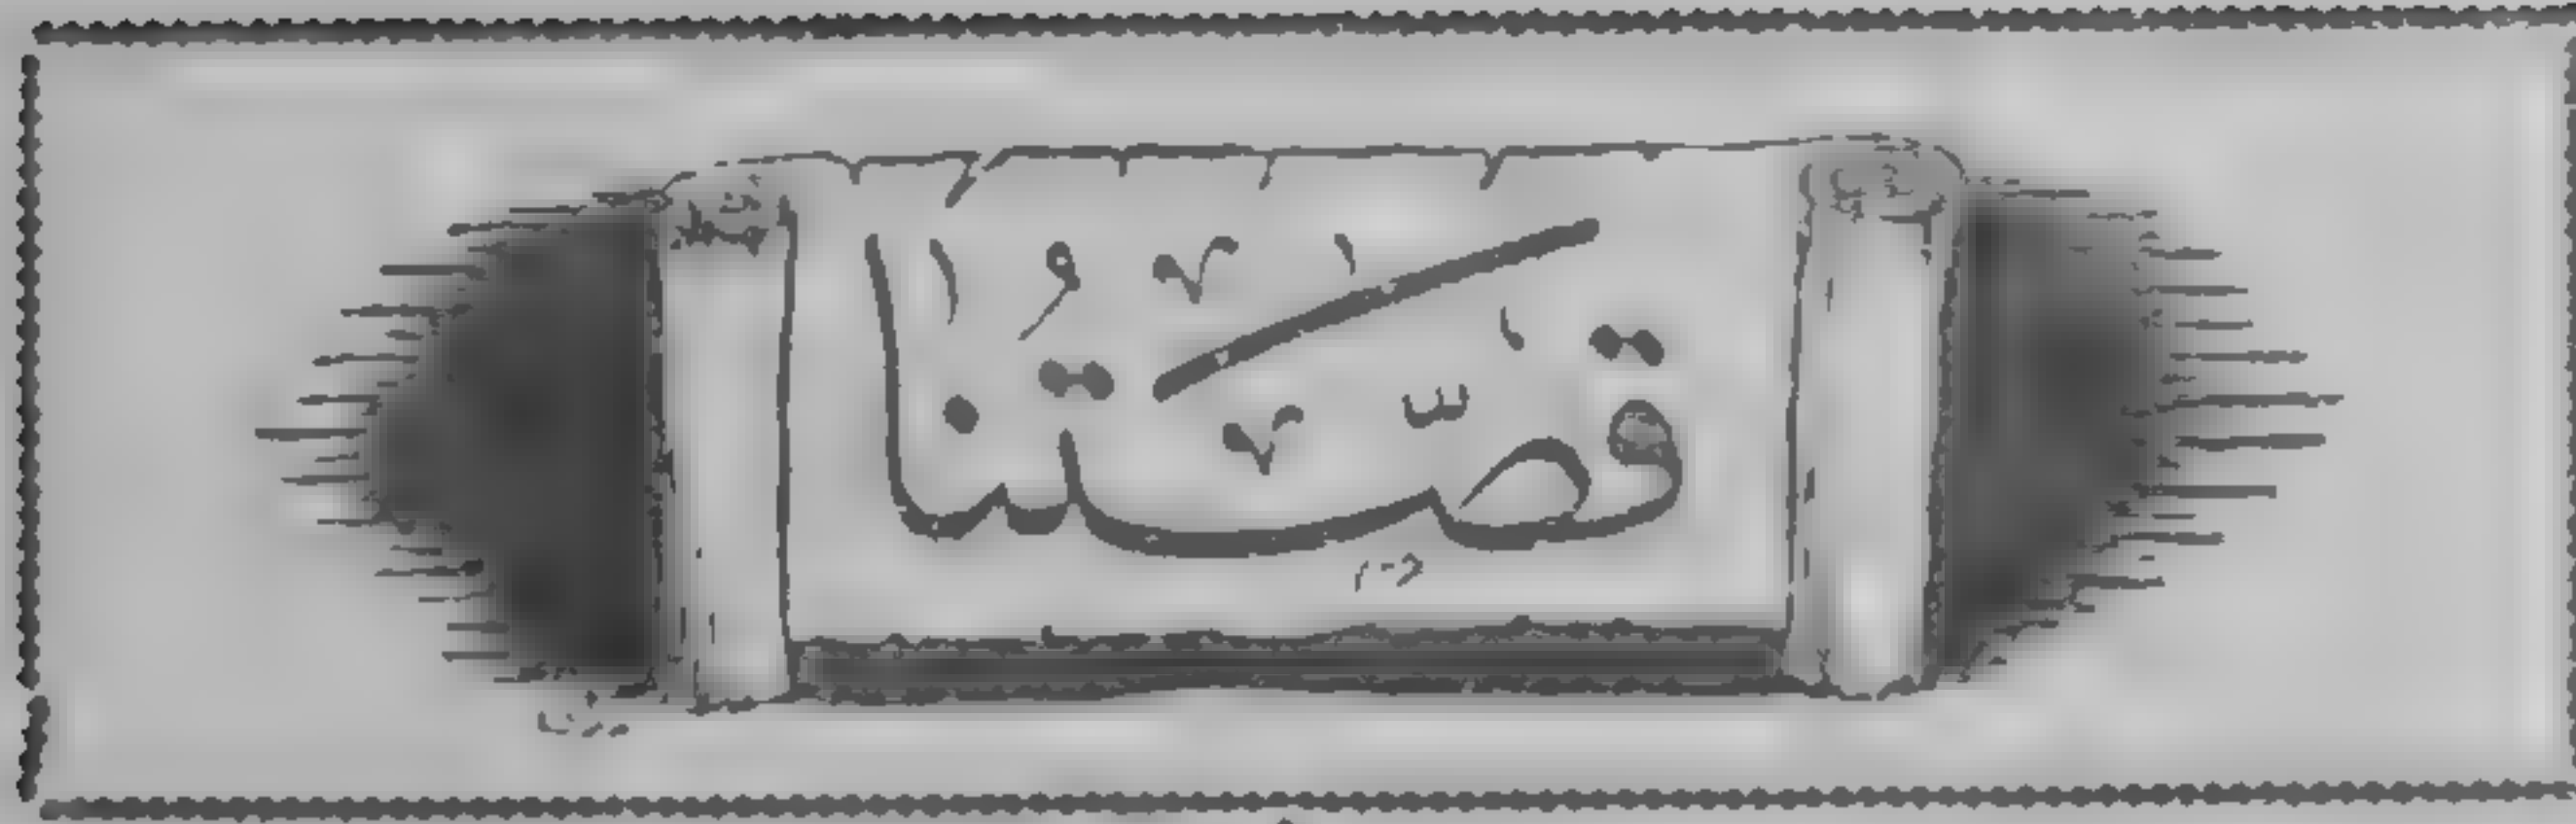 قصّتنا